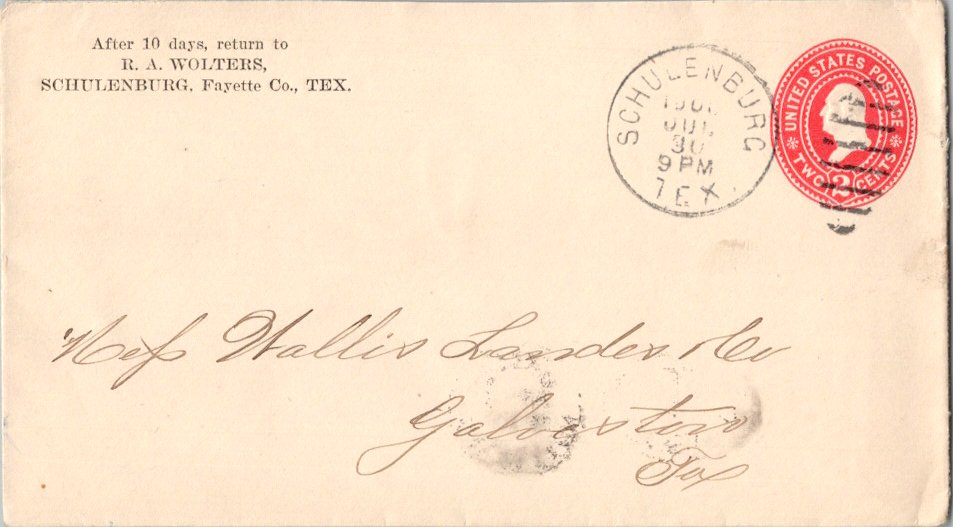 After 10 days, return to
R. A. WOLTERS,
SCHULENBURG, Fayette Co., TEX.
SCHULENBURG
JUL
30
9 PM
TEX.
UNITED STATES POSTAGE
TWO 2 CENTS
Mess Wallis Landes & Co
Galveston
Tex